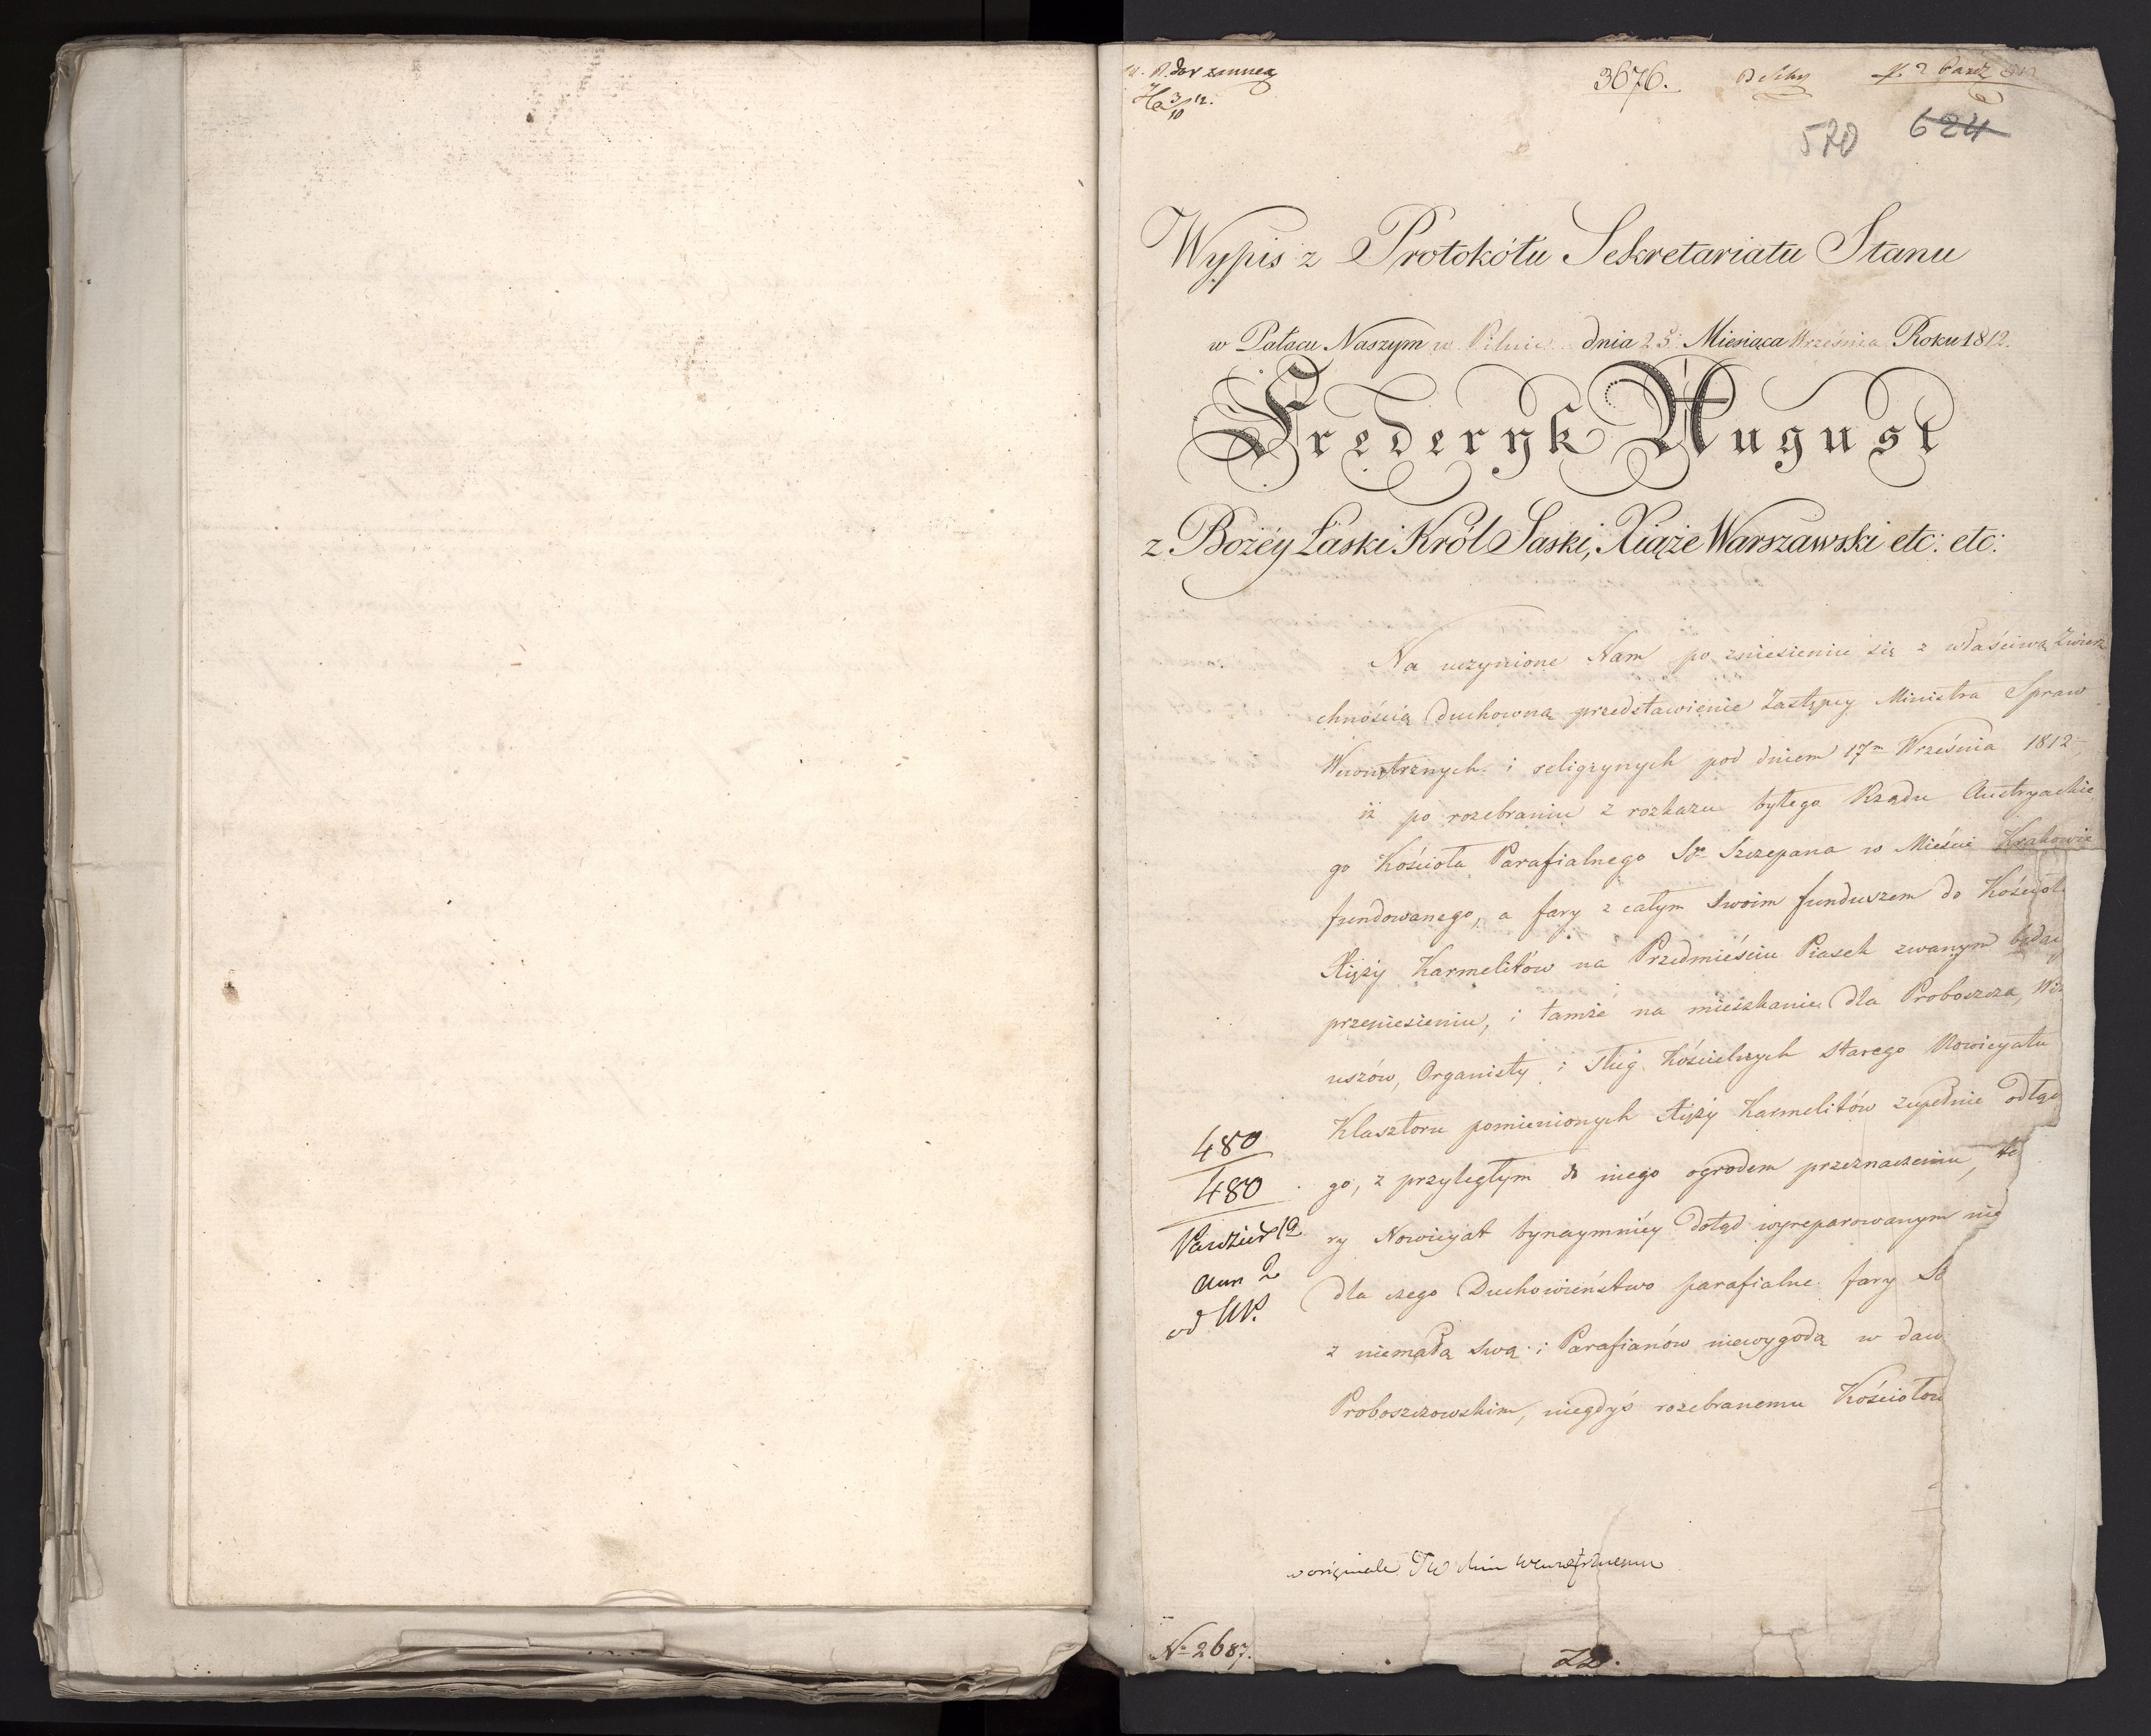 3676.
570 624
Wypis z Protokółu Sekretariatu Stanu
w Pałacu Naszym w Pilnic dnia 25 Miesiąca Września Roku 1812.
Fryderyk August
z Bożéy Łaski Król Saski, Xiąże Warszawski etc: etc:
Na uczynione Nam po zniesieniu się z właściwą Zwierz
chnością duchowną przedstawienie Zastępcy Ministra Spraw
Wewnętrznych i religiynych pod dniem 17m Września 1812
iż po rozebraniu z rozkazu byłego Rządu Austryackie
go Kościoła Parafialnego Sgo Szczepana w Mieście Krakowie
fundowanego, a fary z całym swoim funduszem do Kościoł
Xięży Karmelitów na Przedmieściu Piasek zwanym będąc
przeniesieniu, i tamże na mieszkanie dla Proboszcza, Wik
uszów, Organisty i sług Kościelnych starego Nowicyatu
Klasztoru pomienionych Xięży Karmelitów zupełnie odłąc
go, z przyległym do niego ogrodem przeznaczeniu, któ
ry Nowicyat bynaymniéy dotąd wyreparowanym nie
dla czego Duchowieństwo parafialne fary
z niemałą swą i Parafianów niewygodą w daw
Proboszczowskim, niegdyś rozebranemu Kościołow
480
480
Paździer 12
od
w originale Min Wewnętrznemu
No 2687.